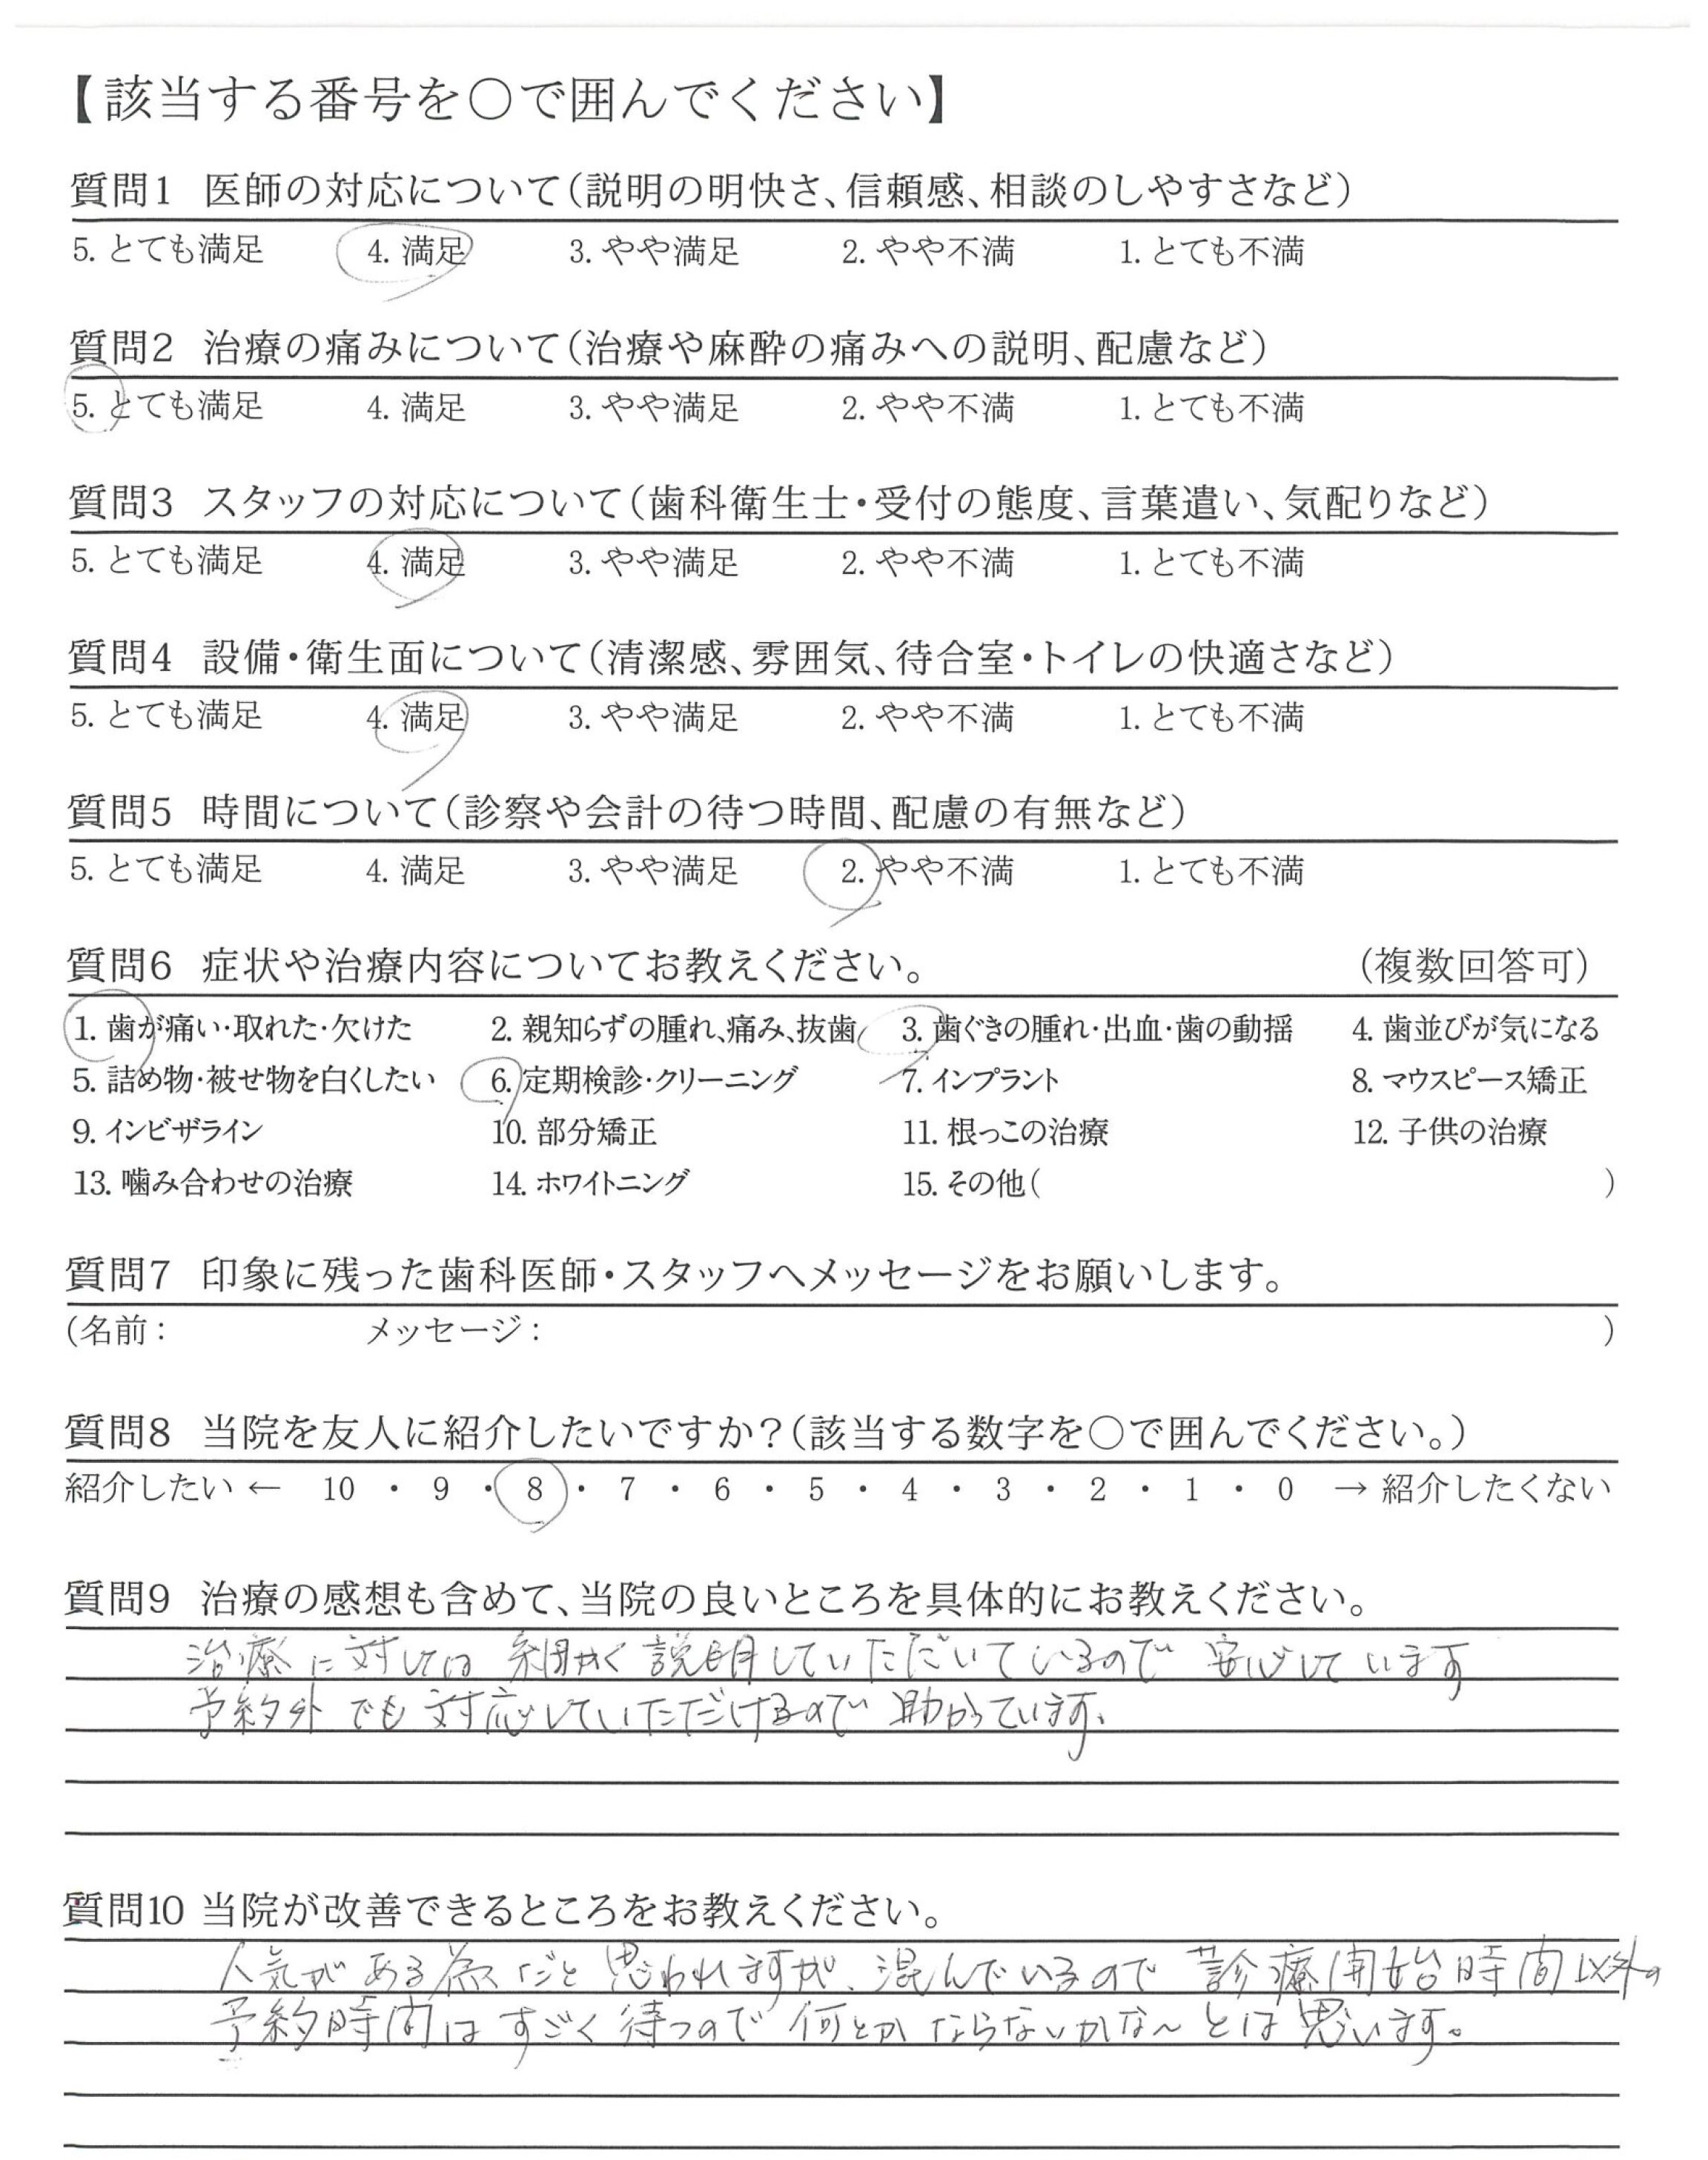 【該当する番号を〇で囲んでください】
質問1 医師の対応について(説明の明快さ、信頼感、相談のしやすさなど)
5. とても満足 4. 満足 3. やや満足 2. やや不満 1. とても不満
質問2 治療の痛みについて(治療や麻酔の痛みへの説明、配慮など)
5. とても満足 4. 満足 3. やや満足 2. やや不満 1. とても不満
質問3 スタッフの対応について(歯科衛生士・受付の態度、言葉遣い、気配りなど)
5. とても満足 4. 満足 3. やや満足 2. やや不満 1. とても不満
質問4 設備・衛生面について(清潔感、雰囲気、待合室・トイレの快適さなど)
5. とても満足 4. 満足 3. やや満足 2. やや不満 1. とても不満
質問5 時間について(診察や会計の待つ時間、配慮の有無など)
5. とても満足 4. 満足 3. やや満足 2. やや不満 1. とても不満
質問6 症状や治療内容についてお教えください。 (複数回答可)
1. 歯が痛い・取れた・欠けた 2. 親知らずの腫れ、痛み、抜歯 3. 歯ぐきの腫れ・出血・歯の動揺 4. 歯並びが気になる
5. 詰め物・被せ物を白くしたい 6. 定期検診・クリーニング 7. インプラント 8. マウスピース矯正
9. インビザライン 10. 部分矯正 11. 根っこの治療 12. 子供の治療
13. 噛み合わせの治療 14. ホワイトニング 15. その他( )
質問7 印象に残った歯科医師・スタッフへメッセージをお願いします。
(名前： メッセージ： )
質問8 当院を友人に紹介したいですか？(該当する数字を〇で囲んでください。)
紹介したい ← 10 ・ 9 ・ 8 ・ 7 ・ 6 ・ 5 ・ 4 ・ 3 ・ 2 ・ 1 ・ 0 → 紹介したくない
質問9 治療の感想も含めて、当院の良いところを具体的にお教えください。
治療に対しては 細かく 説明していただいているので 安心しています
予約外でも 対応していただけるので 助かっています。
質問10 当院が改善できるところをお教えください。
人気がある為だと思われますが、混んでいるので 診療開始時間以外の
予約時間は すごく待つので 何とかならないかな～とは思います。